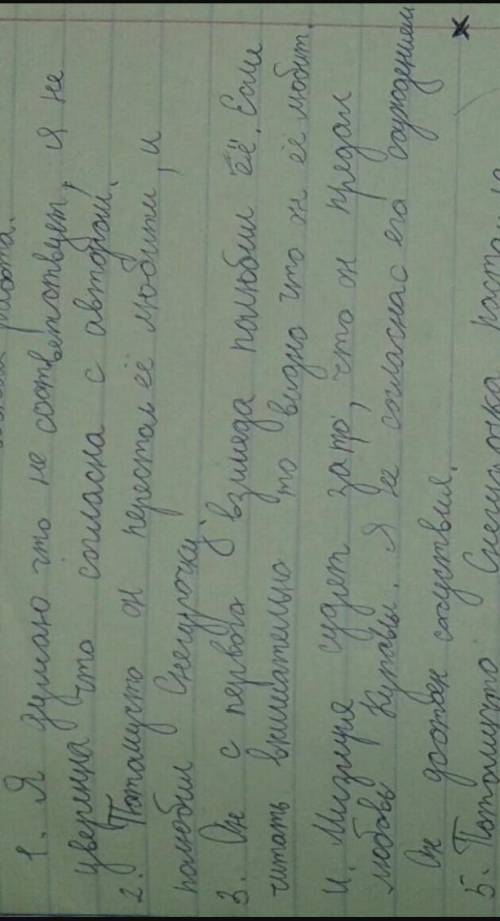 работа.
1. Я думаю что не соответствует, я не
уверенна что согласна с автором.
2. Потомучто он перестал её любити, и
полюбил Снегурочку.
3. Он с первого взгляда полюбил её. Если
читать внимательно то видно что он её любит.
4. Мизгиря судят зато, что он предал
любовь Купавы. Я не согласнас его осуждением
Он достоен сочуствия.
5. Потомучто